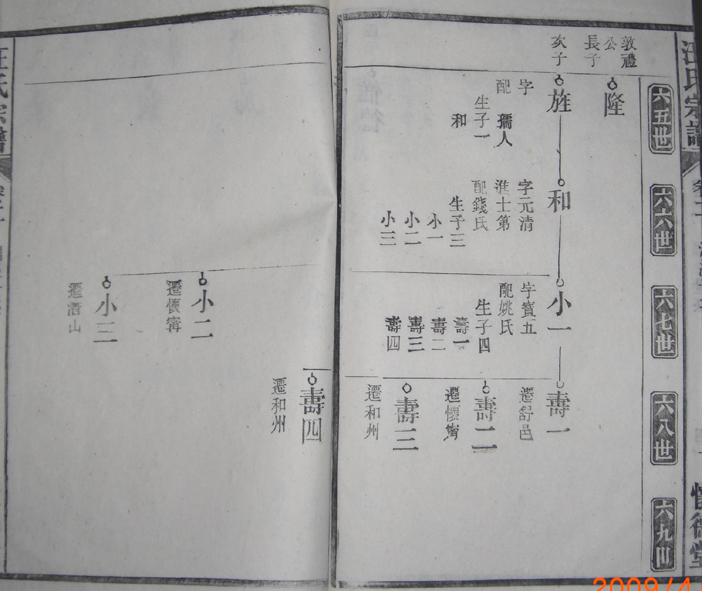 汪氏宗譜
六五世
六六世
六七世
六八世
六九世
敦禮公長子
隆
次子
旌
字
配 獨人
生子一
和
和
字元清
進士第
配錢氏
生子三
小一
小二
小三
小一
字寶五
配姚氏
生子四
壽一
壽二
壽三
壽四
壽一
遷舒邑
壽二
遷懷寧
壽三
遷和州
壽四
遷和州
小二
遷懷寧
小三
遷潛山
汪氏宗譜
2009/4